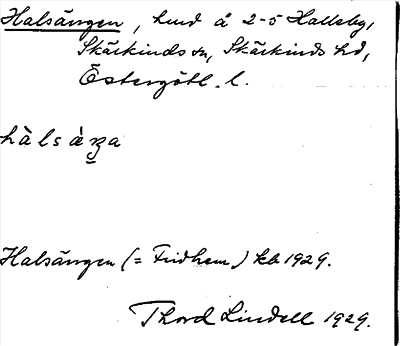 Halsängen, hmd å 2-5 Halleby,
Skärkinds sn, Skärkinds hd,
Östergötl. l.
hàlsàŋa
Halsängen (= Fridhem) kb 1929.
Thord Lindell 1929.